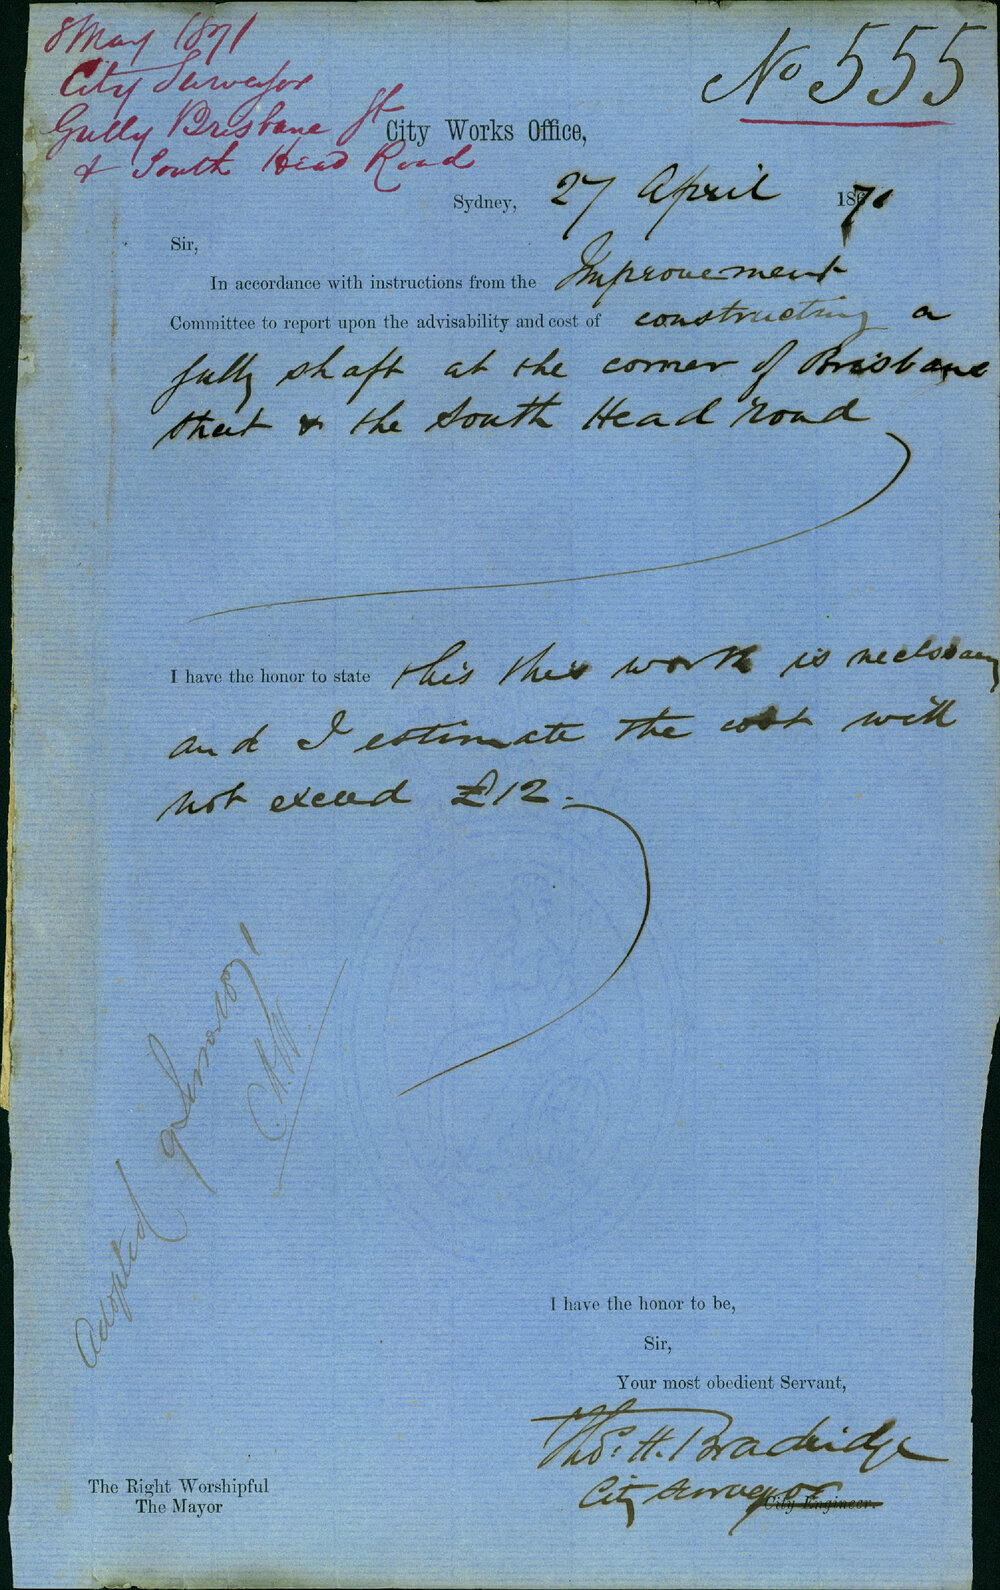 8 May 1871
City Surveyor
Gully Brisbane St
& South Head Road
No 555
City Works Office,
Sydney, 27 April 1871
Sir,
In accordance with instructions from the Improvement
Committee to report upon the advisability and cost of constructing a
gully shaft at the corner of Brisbane
street & the South Head road
I have the honor to state this this work is necessary
and I estimate the cost will
not exceed £12.
Adopted
I have the honor to be,
Sir,
Your most obedient Servant,
Thos. H. Bradridge
City Surveyor City Engineer.
The Right Worshipful
The Mayor